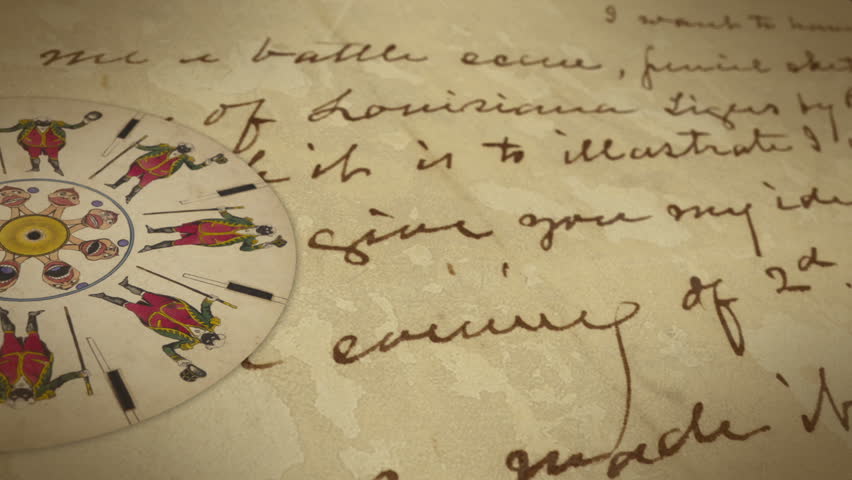 I want to have
me a battle scene, pencil sket
of Louisiana Tigers by
it is to illustrate I
give you my ide
evening of 2d.
made it